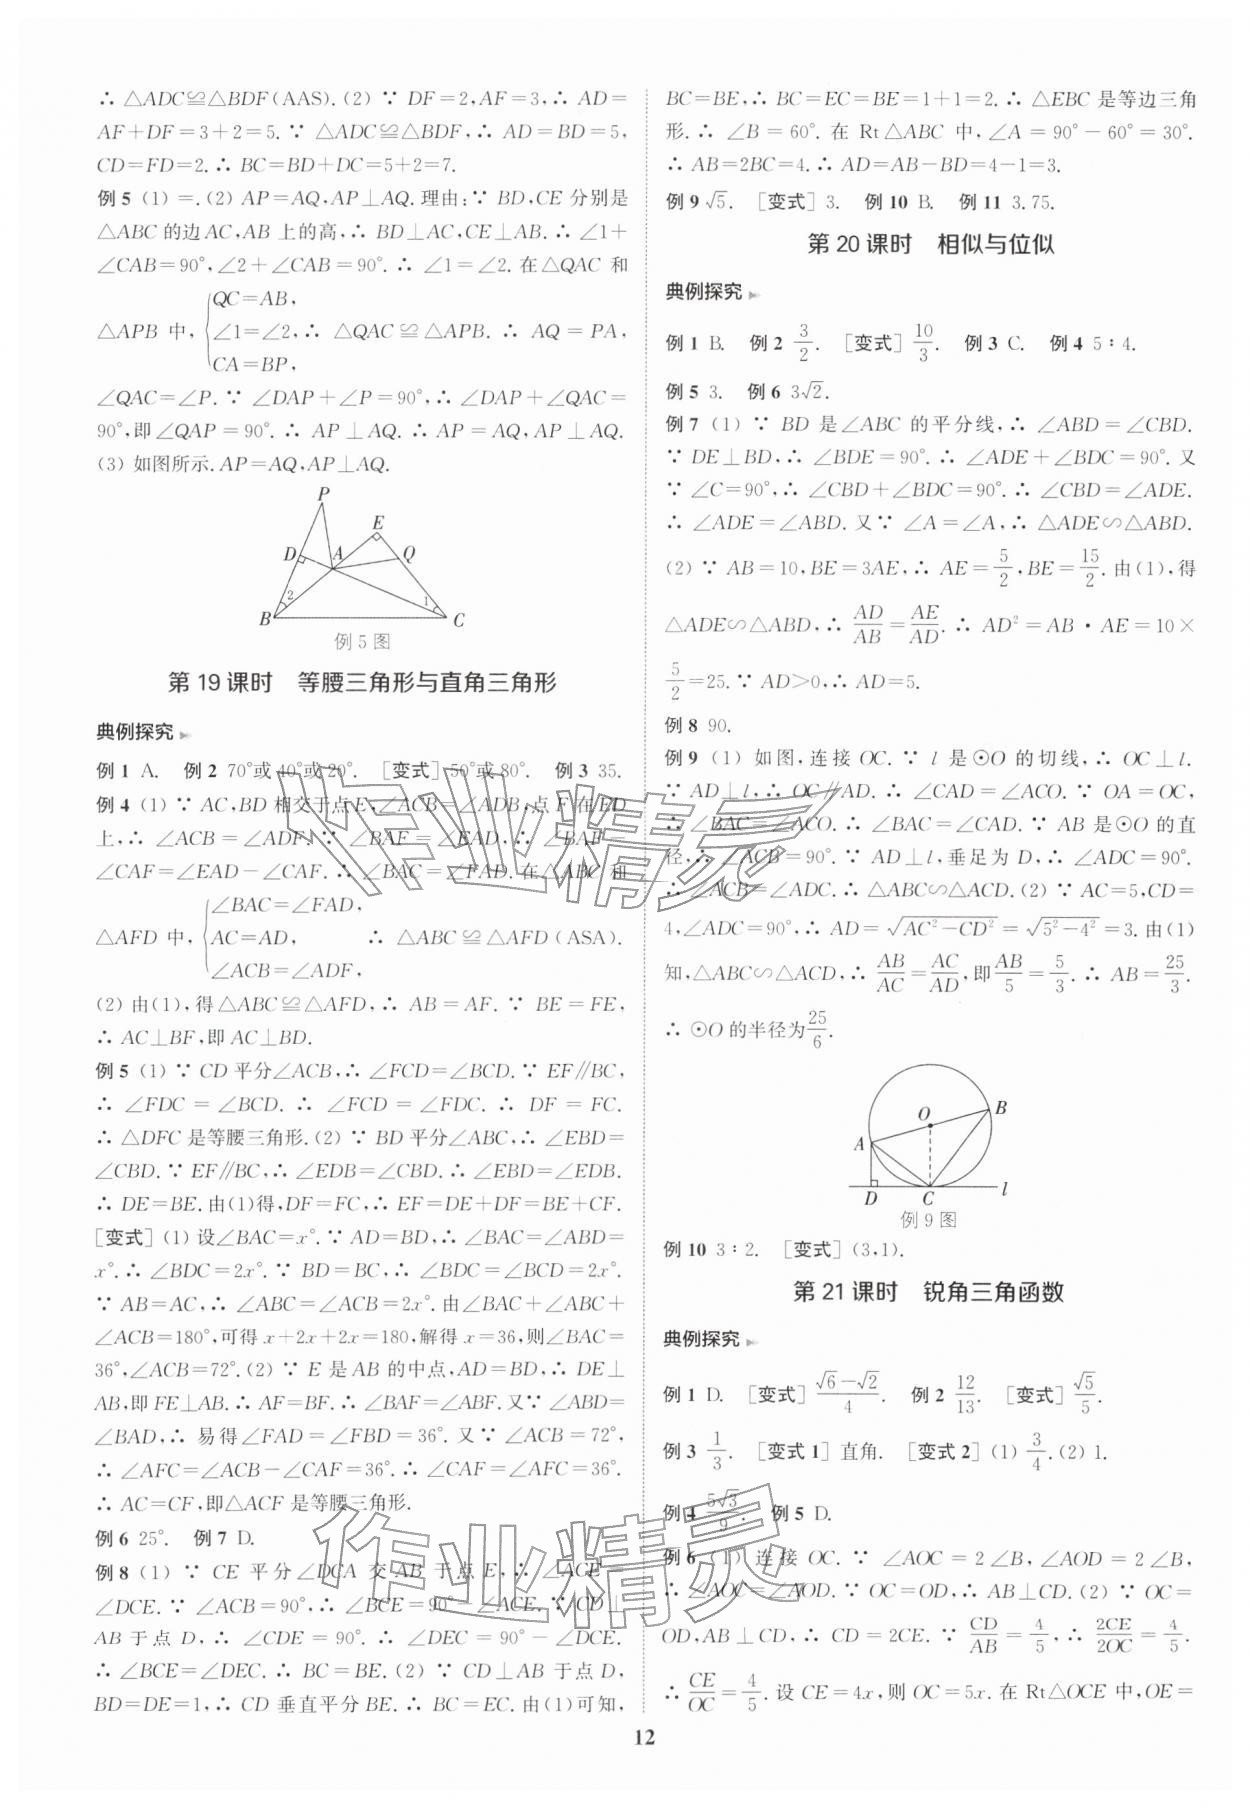 ∴ △ADC≌△BDF(AAS).(2) ∵ DF=2,AF=3,∴ AD=
AF+DF=3+2=5.∵ △ADC≌△BDF,∴ AD=BD=5,
CD=FD=2.∴ BC=BD+DC=5+2=7.
例 5 (1) =.(2) AP=AQ,AP⊥AQ.理由:∵ BD,CE 分别是
△ABC 的边 AC,AB 上的高,∴ BD⊥AC,CE⊥AB.∴ ∠1+
∠CAB=90°,∠2+∠CAB=90°.∴ ∠1=∠2.在△QAC 和
QC=AB,
△APB 中, ∠1=∠2, ∴ △QAC≌△APB.∴ AQ=PA,
CA=BP,
∠QAC=∠P.∵ ∠DAP+∠P=90°,∴ ∠DAP+∠QAC=
90°,即∠QAP=90°.∴ AP⊥AQ.∴ AP=AQ,AP⊥AQ.
(3) 如图所示.AP=AQ,AP⊥AQ.
P
E
D A Q
2 1
B C
例 5 图
第 19 课时 等腰三角形与直角三角形
典例探究
例 1 A. 例 2 70°或 40°或 20°. [变式] 50°或 80°. 例 3 35.
例 4 (1) ∵ AC,BD 相交于点 E,∠ACB=∠ADB,点 F 在 ED
上,∴ ∠ACB=∠ADF.∵ ∠BAF=∠EAD,∴ ∠BAF-
∠CAF=∠EAD-∠CAF.∴ ∠BAC=∠FAD.在△ABC 和
∠BAC=∠FAD,
△AFD 中, AC=AD, ∴ △ABC≌△AFD(ASA).
∠ACB=∠ADF,
(2) 由(1),得△ABC≌△AFD,∴ AB=AF.∵ BE=FE,
∴ AC⊥BF,即 AC⊥BD.
例 5 (1) ∵ CD 平分∠ACB,∴ ∠FCD=∠BCD.∵ EF∥BC,
∴ ∠FDC=∠BCD.∴ ∠FCD=∠FDC.∴ DF=FC.
∴ △DFC 是等腰三角形.(2) ∵ BD 平分∠ABC,∴ ∠EBD=
∠CBD.∵ EF∥BC,∴ ∠EDB=∠CBD.∴ ∠EBD=∠EDB.
∴ DE=BE.由(1)得,DF=FC,∴ EF=DE+DF=BE+CF.
[变式] (1) 设∠BAC=x°.∵ AD=BD,∴ ∠BAC=∠ABD=
x°.∴ ∠BDC=2x°.∵ BD=BC,∴ ∠BDC=∠BCD=2x°.
∵ AB=AC,∴ ∠ABC=∠ACB=2x°.由∠BAC+∠ABC+
∠ACB=180°,可得 x+2x+2x=180,解得 x=36,则∠BAC=
36°,∠ACB=72°.(2) ∵ E 是 AB 的中点,AD=BD,∴ DE⊥
AB,即 FE⊥AB.∴ AF=BF.∴ ∠BAF=∠ABF.又∵ ∠ABD=
∠BAD,∴ 易得∠FAD=∠FBD=36°.又∵ ∠ACB=72°,
∴ ∠AFC=∠ACB-∠CAF=36°.∴ ∠CAF=∠AFC=36°.
∴ AC=CF,即△ACF 是等腰三角形.
例 6 25°. 例 7 D.
例 8 (1) ∵ CE 平分∠DCA 交 AB 于点 E,∴ ∠ACE=
∠DCE.∵ ∠ACB=90°,∴ ∠BCE=90°-∠ACE.∵ CD⊥
AB 于点 D,∴ ∠CDE=90°.∴ ∠DEC=90°-∠DCE.
∴ ∠BCE=∠DEC.∴ BC=BE.(2) ∵ CD⊥AB 于点 D,
BD=DE=1,∴ CD 垂直平分 BE.∴ BC=EC.由(1)可知,
BC=BE,∴ BC=EC=BE=1+1=2.∴ △EBC 是等边三角
形.∴ ∠B=60°.在 Rt△ABC 中,∠A=90°-60°=30°.
∴ AB=2BC=4.∴ AD=AB-BD=4-1=3.
例 9 √5. [变式] 3. 例 10 B. 例 11 3.75.
第 20 课时 相似与位似
典例探究
例 1 B. 例 2 3/2. [变式] 10/3. 例 3 C. 例 4 5∶4.
例 5 3. 例 6 3√2.
例 7 (1) ∵ BD 是∠ABC 的平分线,∴ ∠ABD=∠CBD.
∵ DE⊥BD,∴ ∠BDE=90°.∴ ∠ADE+∠BDC=90°.又
∵ ∠C=90°,∴ ∠CBD+∠BDC=90°.∴ ∠CBD=∠ADE.
∴ ∠ADE=∠ABD.又∵ ∠A=∠A,∴ △ADE∽△ABD.
(2) ∵ AB=10,BE=3AE,∴ AE=5/2,BE=15/2.由(1),得
△ADE∽△ABD,∴ AD/AB=AE/AD.∴ AD²=AB·AE=10×
5/2=25.∵ AD>0,∴ AD=5.
例 8 90.
例 9 (1) 如图,连接 OC.∵ l 是⊙O 的切线,∴ OC⊥l.
∵ AD⊥l,∴ OC∥AD.∴ ∠CAD=∠ACO.∵ OA=OC,
∴ ∠BAC=∠ACO.∴ ∠BAC=∠CAD.∵ AB 是⊙O 的直
径,∴ ∠ACB=90°.∵ AD⊥l,垂足为 D,∴ ∠ADC=90°.
∴ ∠ACB=∠ADC.∴ △ABC∽△ACD.(2) ∵ AC=5,CD=
4,∠ADC=90°,∴ AD=√(AC²-CD²)=√(5²-4²)=3.由(1)
知,△ABC∽△ACD,∴ AB/AC=AC/AD,即AB/5=5/3.∴ AB=25/3.
∴ ⊙O 的半径为25/6.
O B
A
D C l
例 9 图
例 10 3∶2. [变式] (3,1).
第 21 课时 锐角三角函数
典例探究
例 1 D. [变式] (√6-√2)/4. 例 2 12/13. [变式] √5/5.
例 3 1/3. [变式 1] 直角. [变式 2] (1) 3/4.(2) 1.
例 4 5√3/9. 例 5 D.
例 6 (1) 连接 OC.∵ ∠AOC=2∠B,∠AOD=2∠B,
∴ ∠AOC=∠AOD.∵ OC=OD,∴ AB⊥CD.(2) ∵ OC=
OD,AB⊥CD,∴ CD=2CE.∵ CD/AB=4/5,∴ 2CE/2OC=4/5.
∴ CE/OC=4/5.设 CE=4x,则 OC=5x.在 Rt△OCE 中,OE=
12
作业精灵
作业精灵